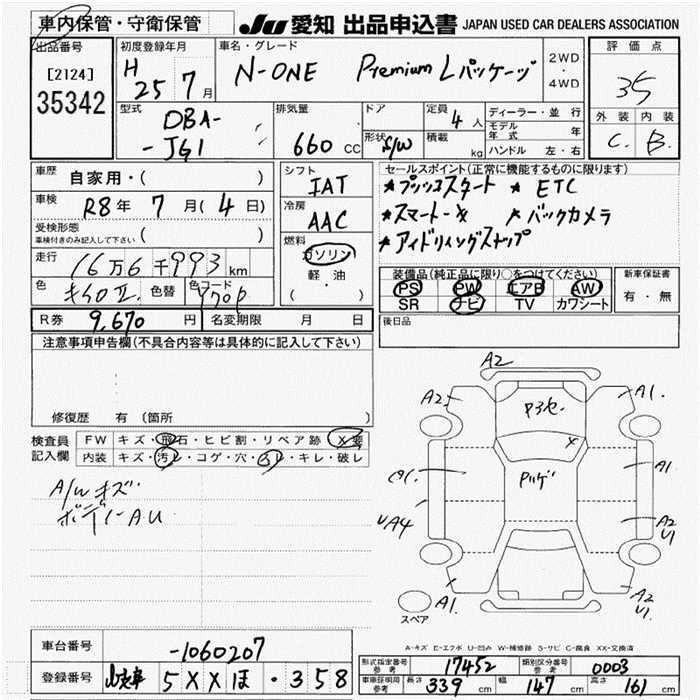 車内保管・守衛保管
JU 愛知 出品申込書 JAPAN USED CAR DEALERS ASSOCIATION
出品番号
[2124]
35342
初度登録年月
H
25 7 月
車名・グレード
N-ONE Premium Lパッケージ
2WD
・
4WD
評価点
35
外装 内装
C. B.
型式
DBA-
-JG1
排気量
660 CC
ドア
形状 S/W
定員
4 人
積載
kg
ディーラー・並行
モデル
年式 年
ハンドル 左・右
車歴
自家用・( )
車検
R8年 7 月( 4 日)
受検形態
車検付きのみ記入して下さい ( )
走行
16万6千993km
色
色替
色コード
Y70P
シフト
IAT
冷房
AAC
燃料
ガソリン
軽・油
( )
セールスポイント(正常に機能するものに限ります)
★プッシュスタート ★ ETC
★スマートキー ★バックカメラ
★アイドリングストップ
装備品(純正品に限り○をつけてください)
PS PW エアB AW
SR ナビ TV カワシート
新車保証書
有・無
R券 9,670 円
名変期限 月 日
後日品
注意事項申告欄(不具合内容等は具体的に記入して下さい)
修復歴 有(箇所 )
検査員
記入欄
FW キズ・飛石・ヒビ割・リペア跡 X要
内装 キズ・汚レ・コゲ・穴・スレ・キレ・破レ
A/Wキズ
ボディーA.U
A2
A2
A1.
A1
UA4
A2
U1
A1.
A2
U1.
スペア
A-キズ E-エクボ U-凹み W-補修跡 S-サビ C-腐食 XX-交換済
車台番号 -1060207
登録番号 5XXほ・358
形式指定番号
参考
17452
類別区分番号
参考
0003
車車証明用
参考
長さ 339 cm 幅 147 cm 高さ 161 cm